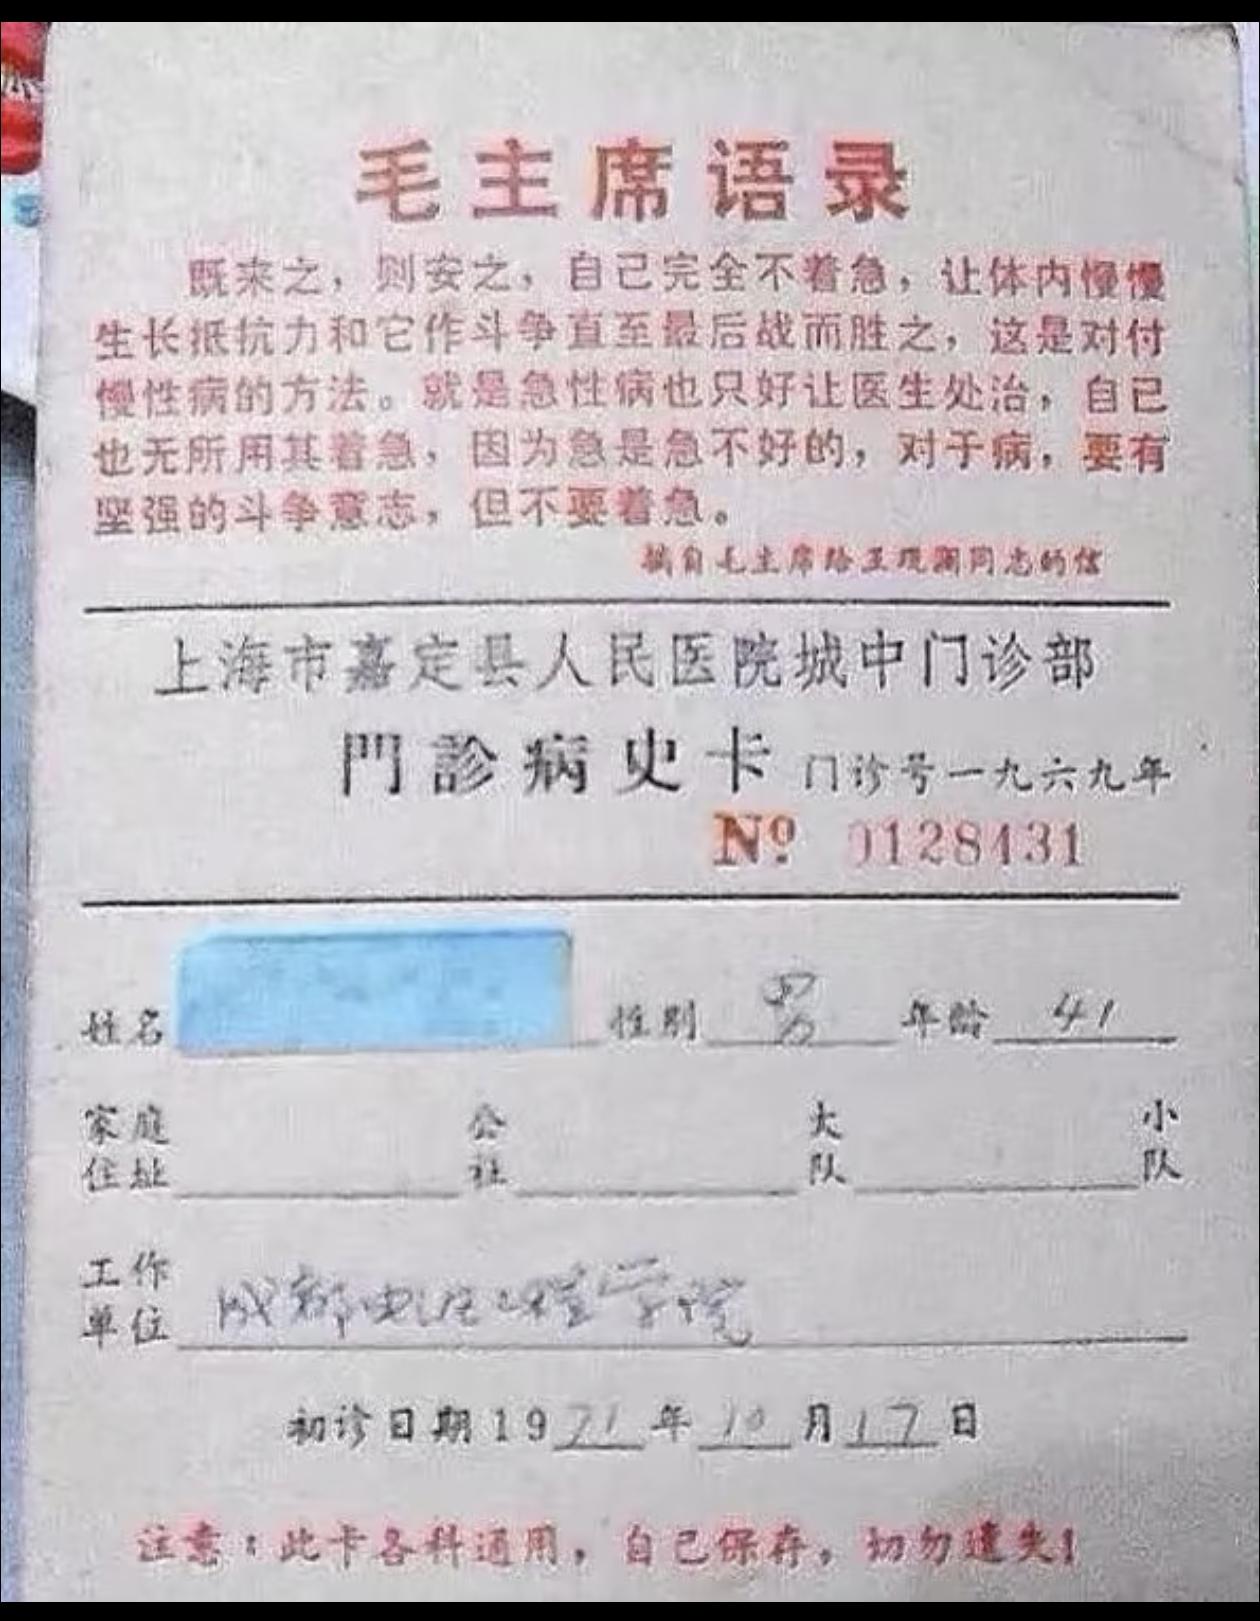 毛主席语录
既来之，则安之，自己完全不着急，让体内慢慢
生长抵抗力和它作斗争直至最后战而胜之，这是对付
慢性病的方法。就是急性病也只好让医生处治，自己
也无所用其着急，因为急是急不好的，对于病，要有
坚强的斗争意志，但不要着急。
摘自毛主席给王观澜同志的信
上海市嘉定县人民医院城中门诊部
門診病史卡 门诊号一九六九年
No 0128431
姓名 性别 男 年龄 41
家庭住址 公社 大队 小队
工作单位 成都电讯工程学院
初诊日期1971年10月17日
注意：此卡各科通用，自己保存，切勿遗失！